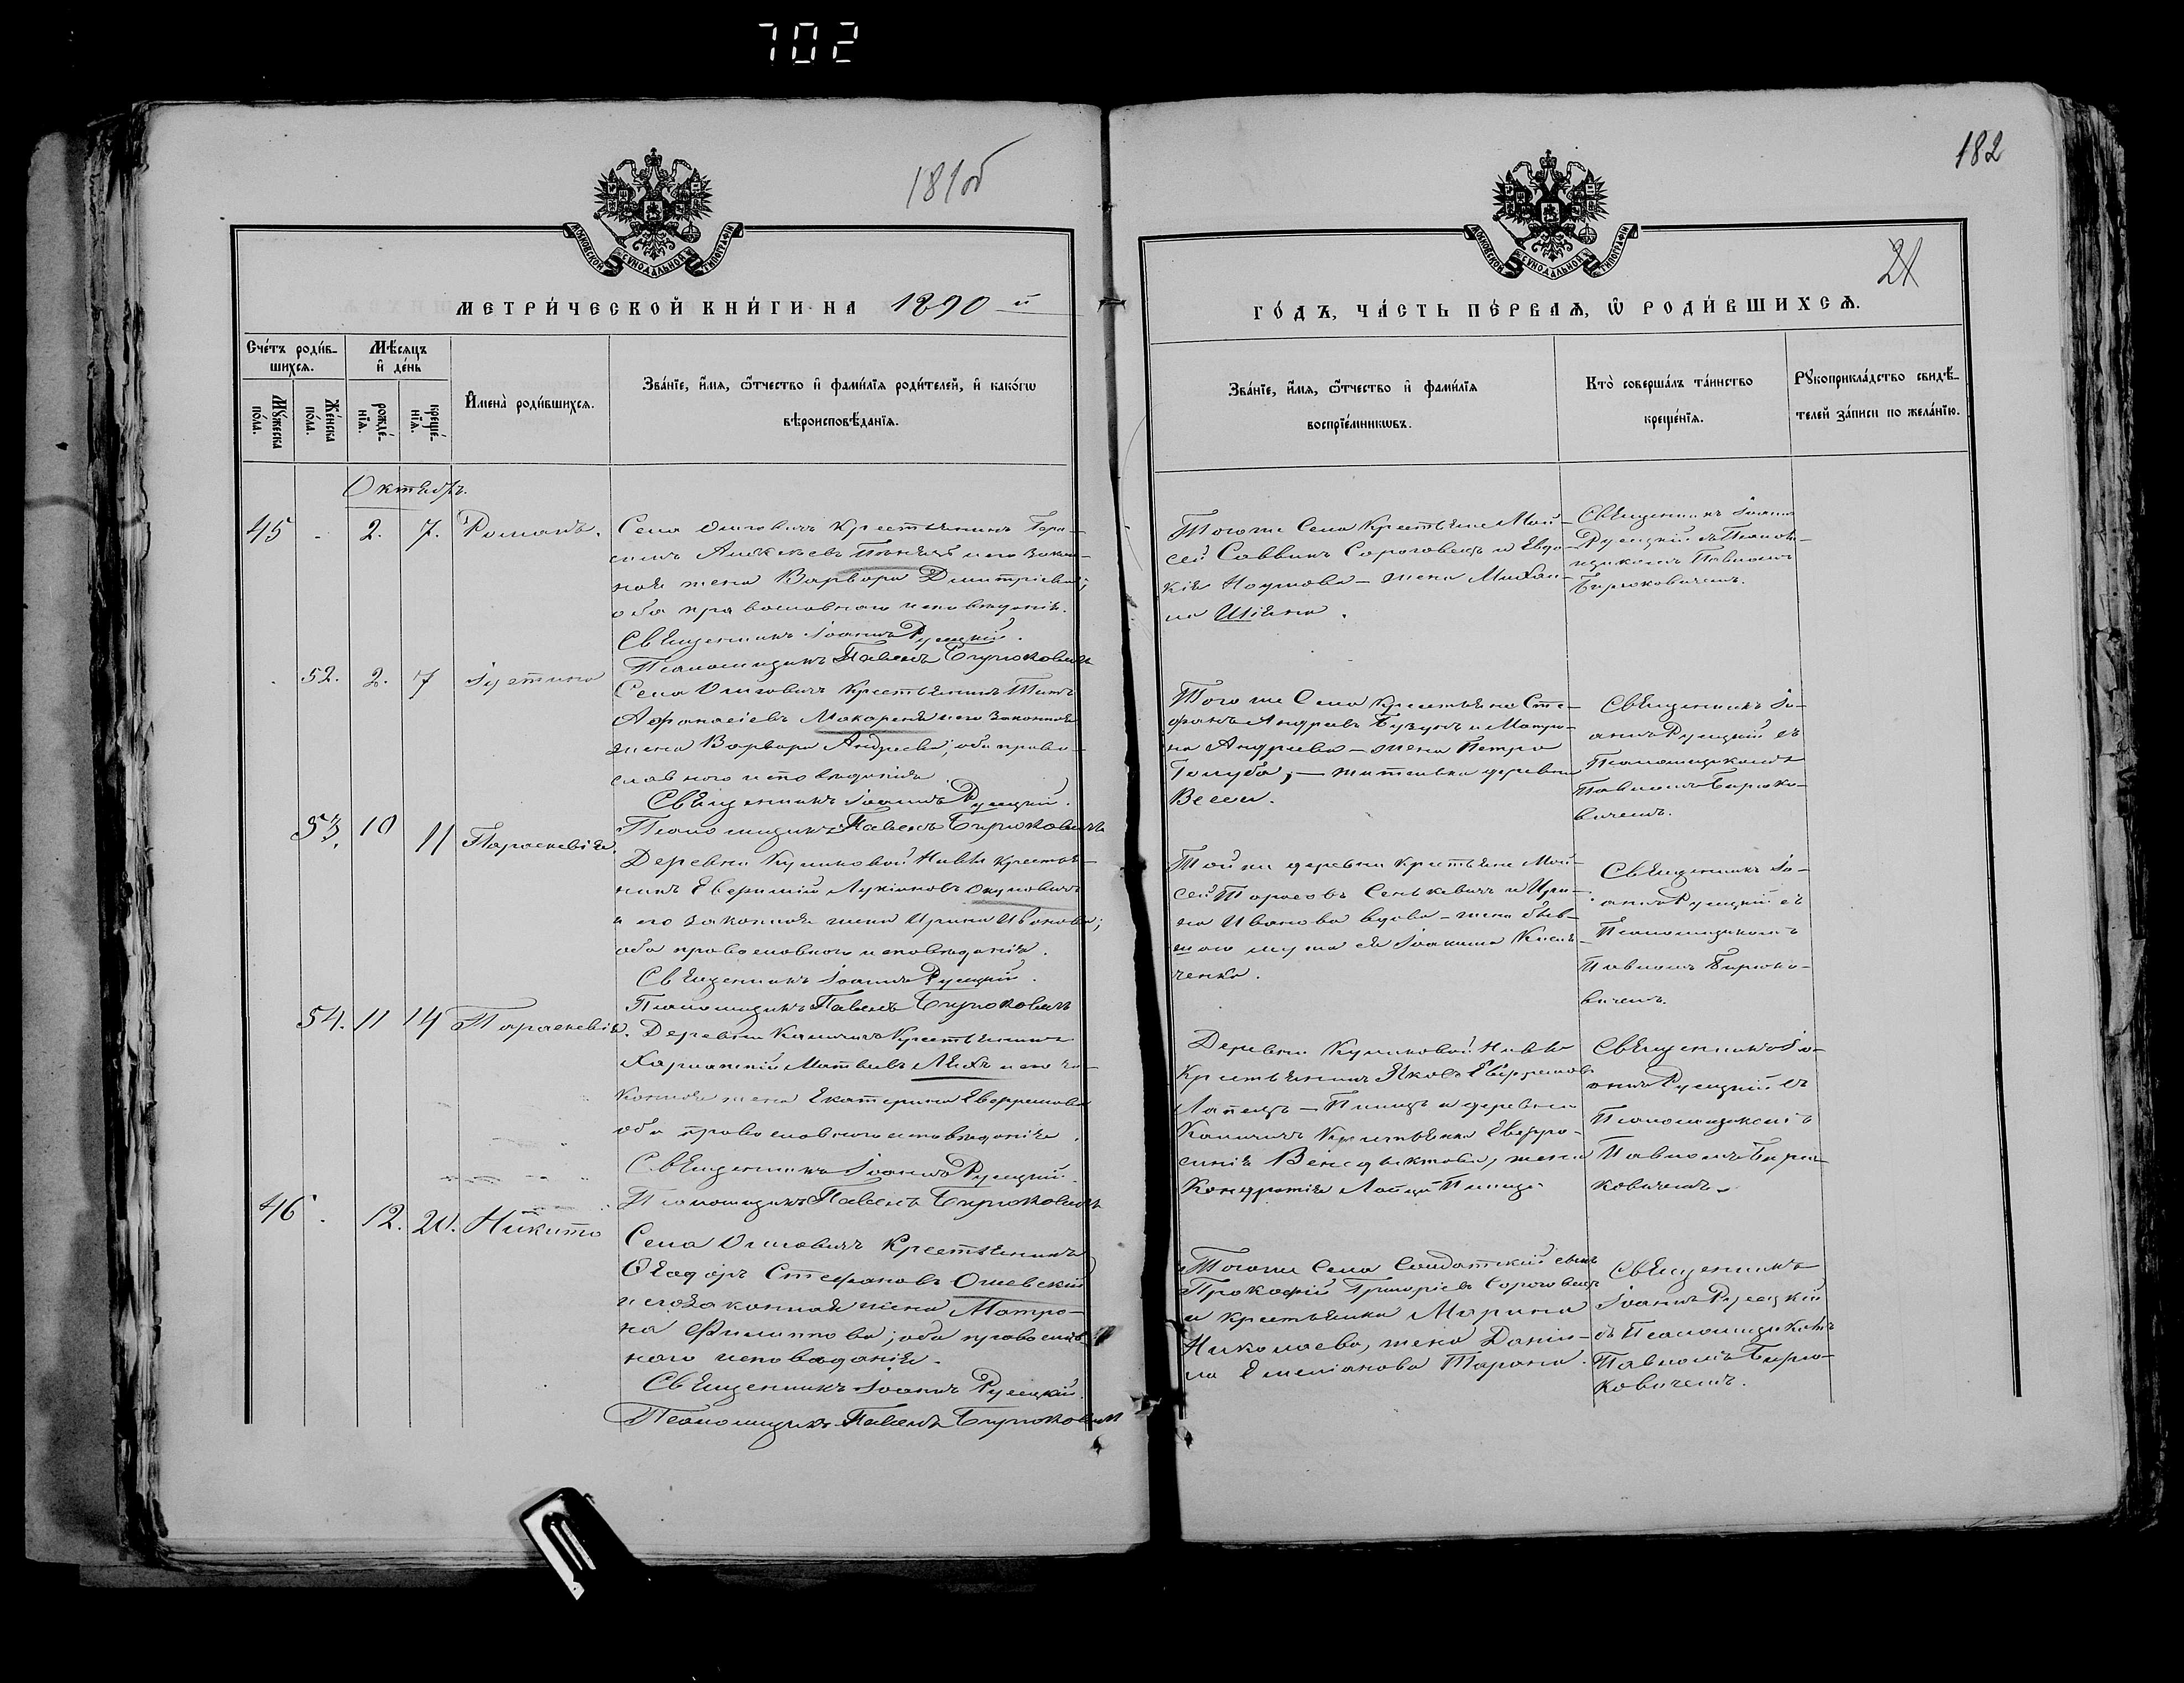 702
181об
182
21
МОСКОВСКОЙ СѴНОДАЛЬНОЙ ТИПОГРАФІИ
МОСКОВСКОЙ СѴНОДАЛЬНОЙ ТИПОГРАФІИ
МЕТРИ́ЧЕСКОЙ КНИ́ГИ НА 1890 й
ГО́ДЪ, ЧА́СТЬ ПЕ́РВАѦ, Ѡ҆ РОДИ́ВШИХСѦ.
Сче́тъ роди́в-
шихсѧ.
Мѣ́сѧцъ
и҆ де́нь
Мꙋ́жеска
по́ла.
Же́нска
по́ла.
рожде́-
нїѧ.
креще́-
нїѧ.
И҆мена̀ роди́вшихсѧ.
Зва́нїе, и҆́мѧ, ѻ҆́тчество и҆ фами́лїѧ роди́телей, и҆ како́гѡ
вѣроисповѣ́данїѧ.
Зва́нїе, и҆́мѧ, ѻ҆́тчество и҆ фами́лїѧ
воспрїе́мникѡвъ.
Кто̀ соверша́лъ та́инство
креще́нїѧ.
Рꙋкоприкла́дство свидѣ́-
телей за́писи по жела́нїю.
Октябрь.
45 - 2. 7. Романъ.
Села Олиговичъ Крестьянинъ Гера-
симъ Алексѣевъ и его закон-
ная жена Варвара Димитріева;
оба православного исповѣданія.
Священникъ Іоаннъ Рулицкій.
Псаломщикъ Павелъ Бирюковичъ
Того же Села Крестьяне Мой-
сей Саввинъ Сороговецъ и Евдо-
кія Наумова - жена Михаи-
ла Шіяна.
Священникъ Іоаннъ
Рулицкій съ Псалом-
щикомъ Павломъ
Бирюковичемъ.
52. 2. 7 Іустина
Села Олиговичъ Крестьянинъ Титъ
Афанасіевъ Макареня и его законная
жена Варвара Андреева; оба право-
славного исповѣданія.
Священникъ Іоаннъ Рулицкій.
Псаломщикъ Павелъ Бирюковичъ
Того же Села Крестьяне Сте-
фанъ Андреевъ и Матро-
на Андреева - жена Петра
Голуба, - жителька деревни
Весели.
Священникъ Іо-
аннъ Рулицкій съ
Псаломщикомъ
Павломъ Бирюко-
вичемъ.
53. 10 11 Параскевія.
Деревни Куликовой Нивы крестья-
нинъ Евфимій Лукіановъ Окуновичъ
и его законная жена Ирина Иванова;
оба православного исповѣданія.
Священникъ Іоаннъ Рулицкій.
Псаломщикъ Павелъ Бирюковичъ
Той же деревни крестьяне Мой-
сей Тарасовъ Сенькевичъ и Ири-
на Иванова вдова - жена быв-
шаго мужа ея Іоакима
Священникъ Іо-
аннъ Рулицкій съ
Псаломщикомъ
Павломъ Бирюко-
вичемъ.
54. 11 14 Параскевія.
Деревни Крестьянинъ
Харлампій Матвѣевъ и его за-
конная жена Екатерина Евфремова
оба православного исповѣданія.
Священникъ Іоаннъ Рулицкій.
Псаломщикъ Павелъ Бирюковичъ
Деревни Куликовой Нивы
Крестьянинъ Яковъ Евфремовъ
и деревни
Крестьянка Евфро-
синія Венедыктова, жена
Кондратія
Священникъ Іо-
аннъ Рулицкій съ
Псаломщикомъ
Павломъ Бирю-
ковичемъ.
46 . 12. 20. Никита
Села Олиговичъ Крестьянинъ
Ѳеодоръ Стефановъ Ошевскій
и его законная жена Матро-
на Филиппова; оба православ-
ного исповѣданія.
Священникъ Іоаннъ Рулицкій.
Псаломщикъ Павелъ Бирюковичъ
Того же Села Солдатскій сынъ
Прокофій Григоріевъ Сороговецъ
и крестьянка Марина
Николаева, жена Даніи-
ла Емеліанова Тарана.
Священникъ
Іоаннъ Рулицкій
съ Псаломщикомъ
Павломъ Бирю-
ковичемъ.